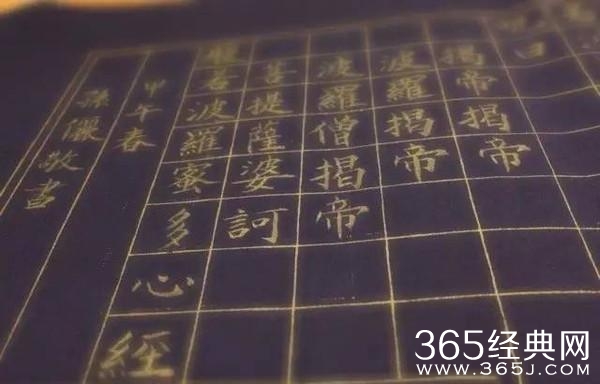 曰
揭帝揭帝
波羅揭帝
波羅僧揭帝
菩提薩婆訶
般若波羅蜜多心經
甲午春
孫儷敬書
365经典网
WWW.365J.COM